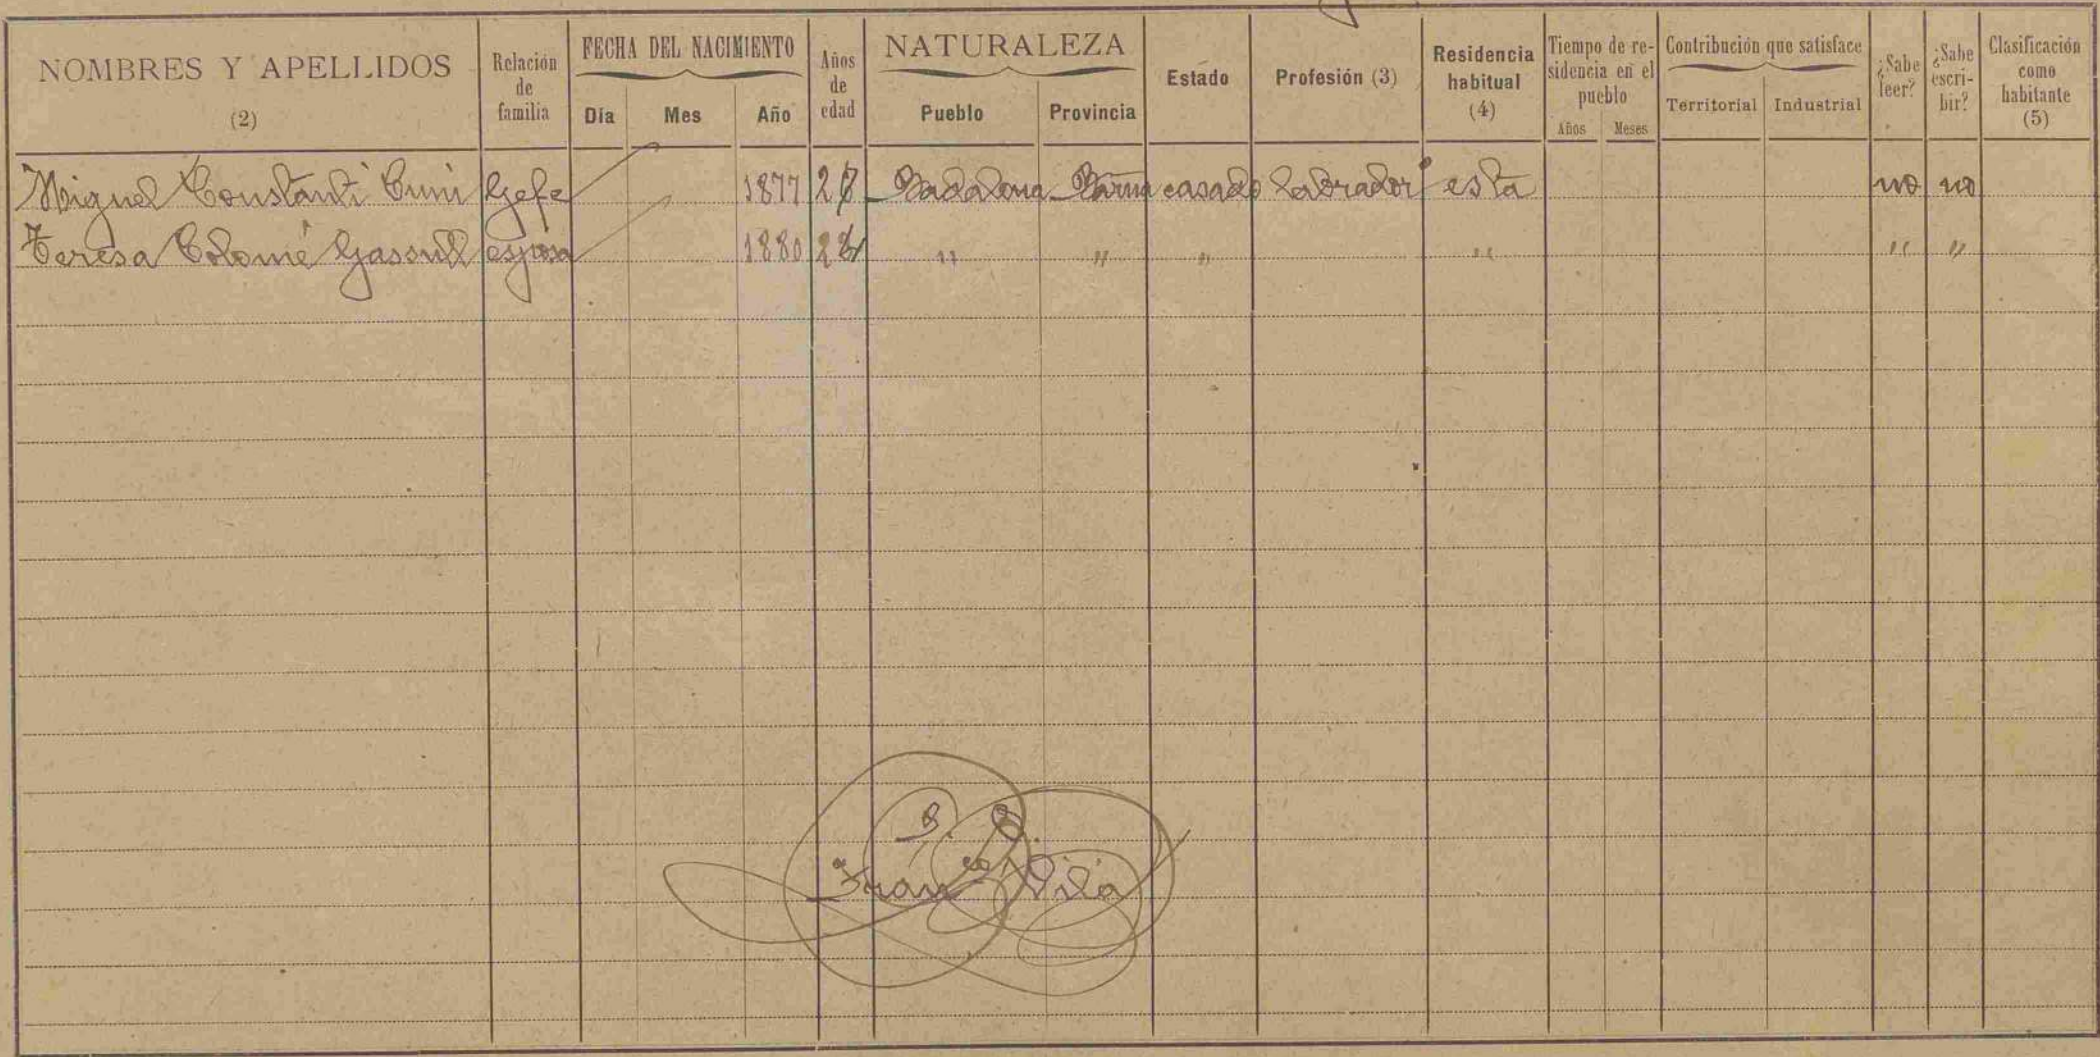 NOMBRES Y APELLIDOS (2) Relación de familia FECHA DEL NACIMIENTO Día Mes Año Años de edad NATURALEZA Pueblo Provincia Estado Profesión (3) Residencia habitual (4) Tiempo de residencia en el pueblo Años Meses Contribución que satisface Territorial Industrial ¿Sabe leer? ¿Sabe escribir? Clasificación como habitante (5)
Miguel Constantí Cuni Gefe 1877 Badalona Barna casado labrador esta no no
Teresa Colomé Gassull esposa 1880 " " " " " "
Fran.co Vila